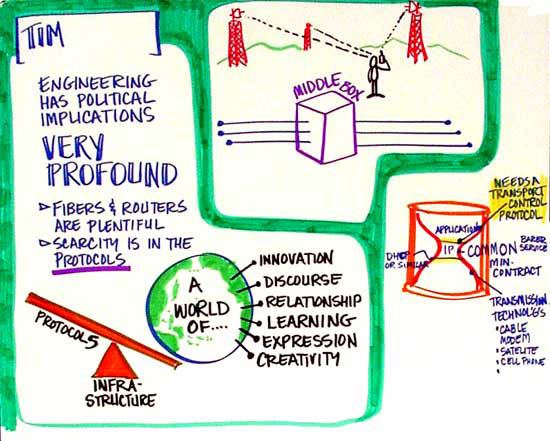 TIM
ENGINEERING
HAS POLITICAL
IMPLICATIONS
VERY
PROFOUND
FIBERS & ROUTERS
ARE PLENTIFUL
SCARCITY IS IN THE
PROTOCOLS
PROTOCOLS
INFRA-
STRUCTURE
A
WORLD
OF....
INNOVATION
DISCOURSE
RELATIONSHIP
LEARNING
EXPRESSION
CREATIVITY
MIDDLE BOX
NEEDS A
TRANSPORT
CONTROL
PROTOCOL
APPLICATION
IP
DHCP
OR SIMILAR
COMMON
MIN.
CONTRACT
SERVICE
TRANSMISSION
TECHNOLOGIES
• CABLE
MODEM
• SATELITE
• CELL PHONE
•